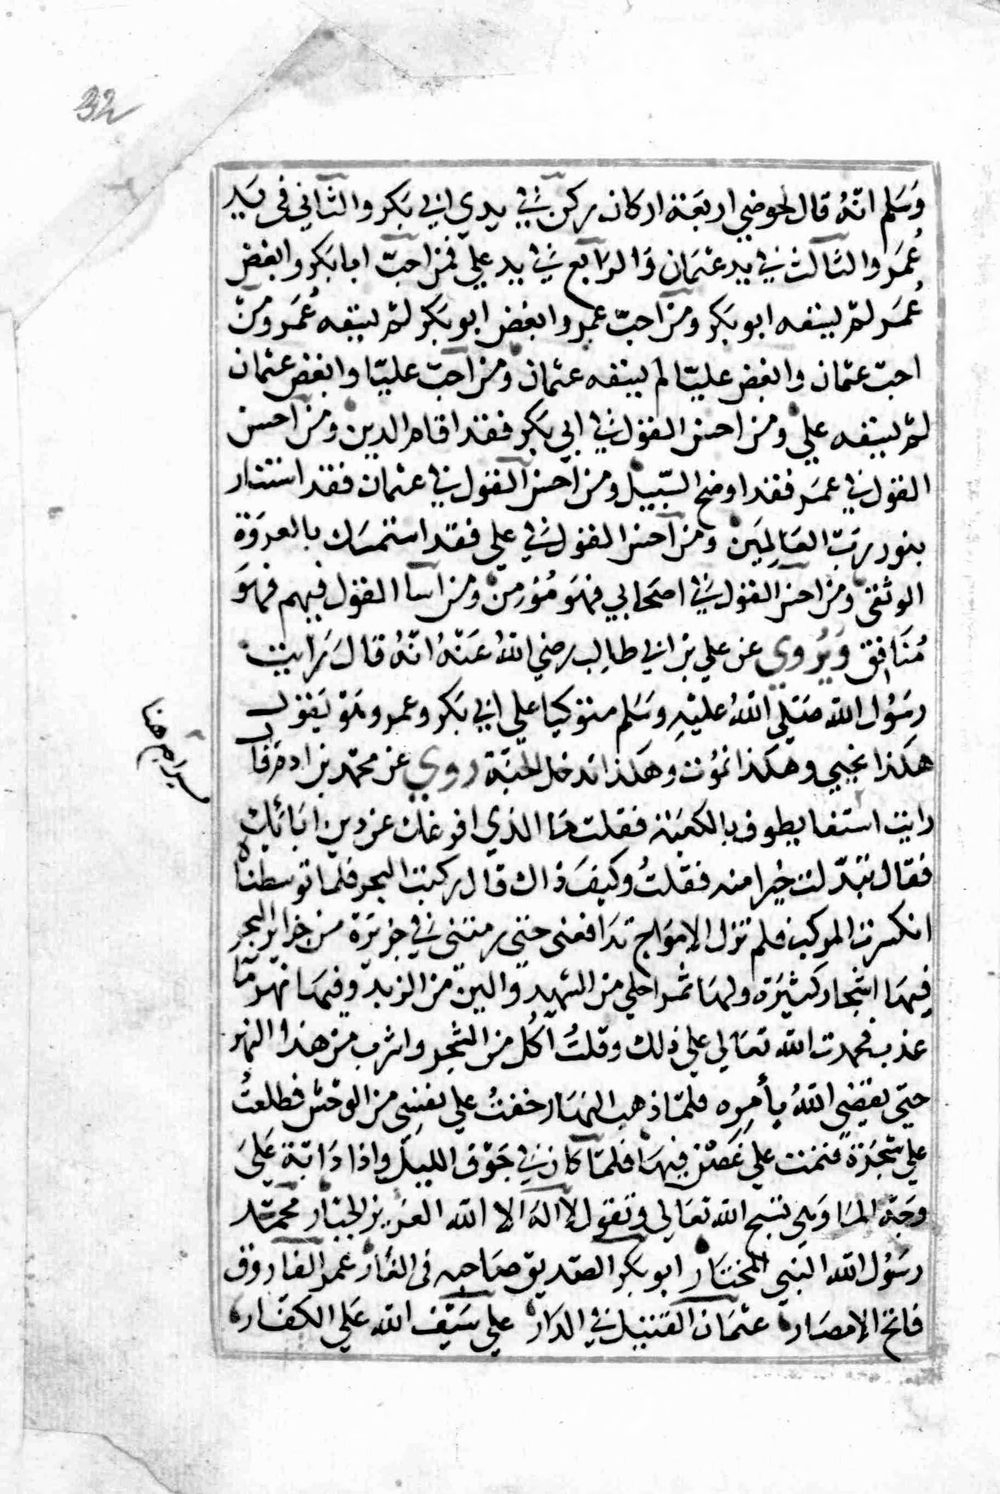 32
وَسَلم انّهُ قال لحوضي اربعَة اركان ركن في يدي ابي بَكر والثاني في يَد
عُمَر والثالث في يد عثمَان وَالرابع في يد علي فمن احبّ ابا بَكر وابغض
عُمَر لم يسقه ابو بَكر ومن احبّ عمر وابغض ابو بَكر لم يسقه عُمَر ومنْ
احبّ عثمان وابغض عليّا لم يسقه عثمان ومن احبّ عليّا وابغض عثمان
لم يسقه علي ومن احسن القول في ابي بَكر فقد اقام الدين ومن احسن
القول في عمَر فقد اوضح السّبيل ومن احسن القول في عثمان فقد استنار
بنور ربّ العَالمِين ومن احسن القول في علي فقد استمسَك بالعروَة
الوثقى ومن احسن القول في اصحابي فهوَ مُؤمِن ومن اسا القول فيهم فهوَ
مُنَافِق وَيُروي عن علي بن ابي طالِب رضي اللهُ عَنْهُ انّهُ قالَ رَايت
رسُول الله صَلي اللهُ عليْهِ وسَلم متوكيا علي ابي بَكر وعمر وهوَ يَقول
هكذا نحيي وهكذا نموُت وهكذا ندخل الجنّة روي عن محمّد بن ادم قال
رايت اسقفا يطوف بالكعبَة فقلت مَا الذي افرغك عن دين ابَائِك
فقال تبدّلت خيرا منه فقلتُ وكيفَ ذاك قال ركبت البحر فلما توسطناه
انكسرت المركب فلم تزل الامواج تدَافعني حتى رمتني في جزيرَة من جزاير البحر
فيهَا اشجار كثيرَة ولهَا ثمر احلي من الشهد والين من الزبد وفيهَا نهر مَا
عذب فحمدت الله تعَالي علي ذلك وقلتُ آكُل من الشجر واشرب من هذا النهر
حتي يقضي اللهُ بأمرِه فلمّا ذهب النهَار خفتُ علي نفسي من الوحْش فطلعتُ
علي شجَرَة فنمت علي غصْن فيهَا فلمّا كان في جَوْف الليل واذا دَابّة عَليَ
وجَه المَا وَهي تسبح الله تعَالي وتقول لا الهَ الا الله العزيز الجبّار محمّد
رسُول الله النبي المختَار ابو بكر الصّديق صَاحبه في الغَار عمر الفاروق
فاتح الامصَار عثمَان القتيل في الدَار علي سَيْف الله عَلي الكفار